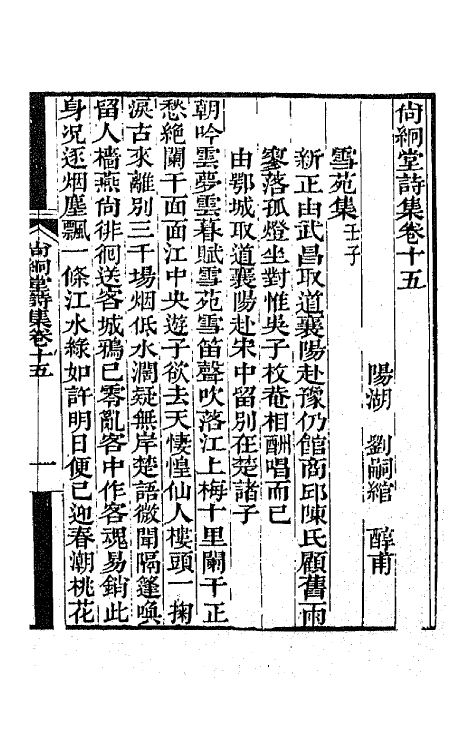 尙絅堂詩集卷十五
陽湖 劉嗣綰 醇甫
雪苑集壬子
新正由武昌取道襄陽赴豫仍館商邱陳氏顧舊雨
寥落孤燈坐對惟吳子枚菴相酬唱而已
由鄂城取道襄陽赴宋中留別在楚諸子
朝吟雲夢雲暮賦雪苑雪笛聲吹落江上梅十里闌干正
愁絕闌干面面江中央遊子欲去天悽惶仙人樓頭一掬
淚古來離別三千場烟低水濶疑無岸楚語微聞隔篷喚
留人檣燕尙徘徊送客城鴉已零亂客中作客魂易銷此
身况逐烟塵飄一條江水綠如許明日便已迎春潮桃花
尙絅堂詩集卷十五 一